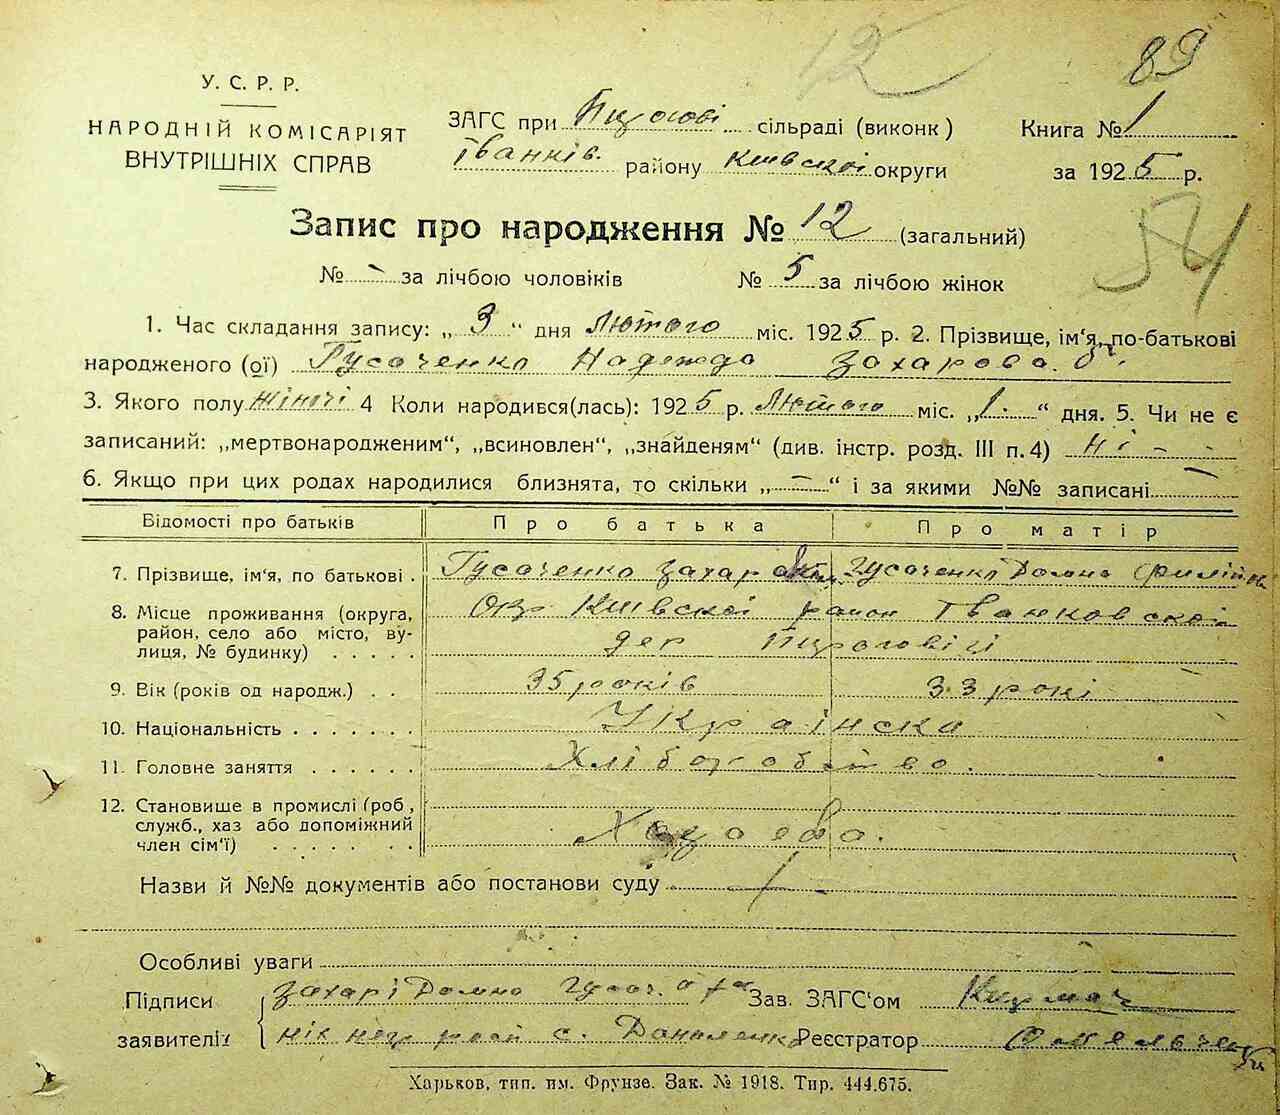 12 89
У. С. Р. Р.
НАРОДНІЙ КОМІСАРІЯТ
ВНУТРІШНІХ СПРАВ
ЗАГС при сільраді (виконк)
Іванків. району Київскої округи
Книга № 1
за 1925 р.
54
Запис про народження № 12 (загальний)
№ - за лічбою чоловіків № 5 за лічбою жінок
1. Час складання запису: „ 3 “ дня Лютого міс. 1925 р. 2. Прізвище, ім'я, по-батькові
народженого (ої) Гусаченко Надежда Захарова
3. Якого полу жіночі 4 Коли народився(лась): 1925 р. Лютого міс. „1.“ дня. 5. Чи не є
записаний: „мертвонародженим“, „всиновлен“, „знайденям“ (див. інстр. розд. III п. 4) ні - -
6. Якщо при цих родах народилися близнята, то скільки „ - “ і за якими №№ записані -
Відомості про батьків Про батька Про матір
7. Прізвище, ім'я, по батькові . Гусаченко Захар Гусаченко Домна
8. Місце проживання (округа, район, село або місто, вулиця, № будинку) . . . . . Окр Київскої район Іванковской
дер
9. Вік (років од народж.) . . 35 років 33 рокі
10. Національність . . . . . . . Українска
11. Головне заняття . . . . . . Хліборобство.
12. Становище в промислі (роб, служб., хаз або допоміжний член сім'ї) . . . . . . .
Назви й №№ документів або постанови суду
Особливі уваги
Підписи Захарі Домна Гусач. Зав. ЗАГС'ом
заявителів с. Даниленко Реєстратор Омельченко
Харьков, тип. им. Фрунзе. Зак. № 1918. Тир. 444.675.